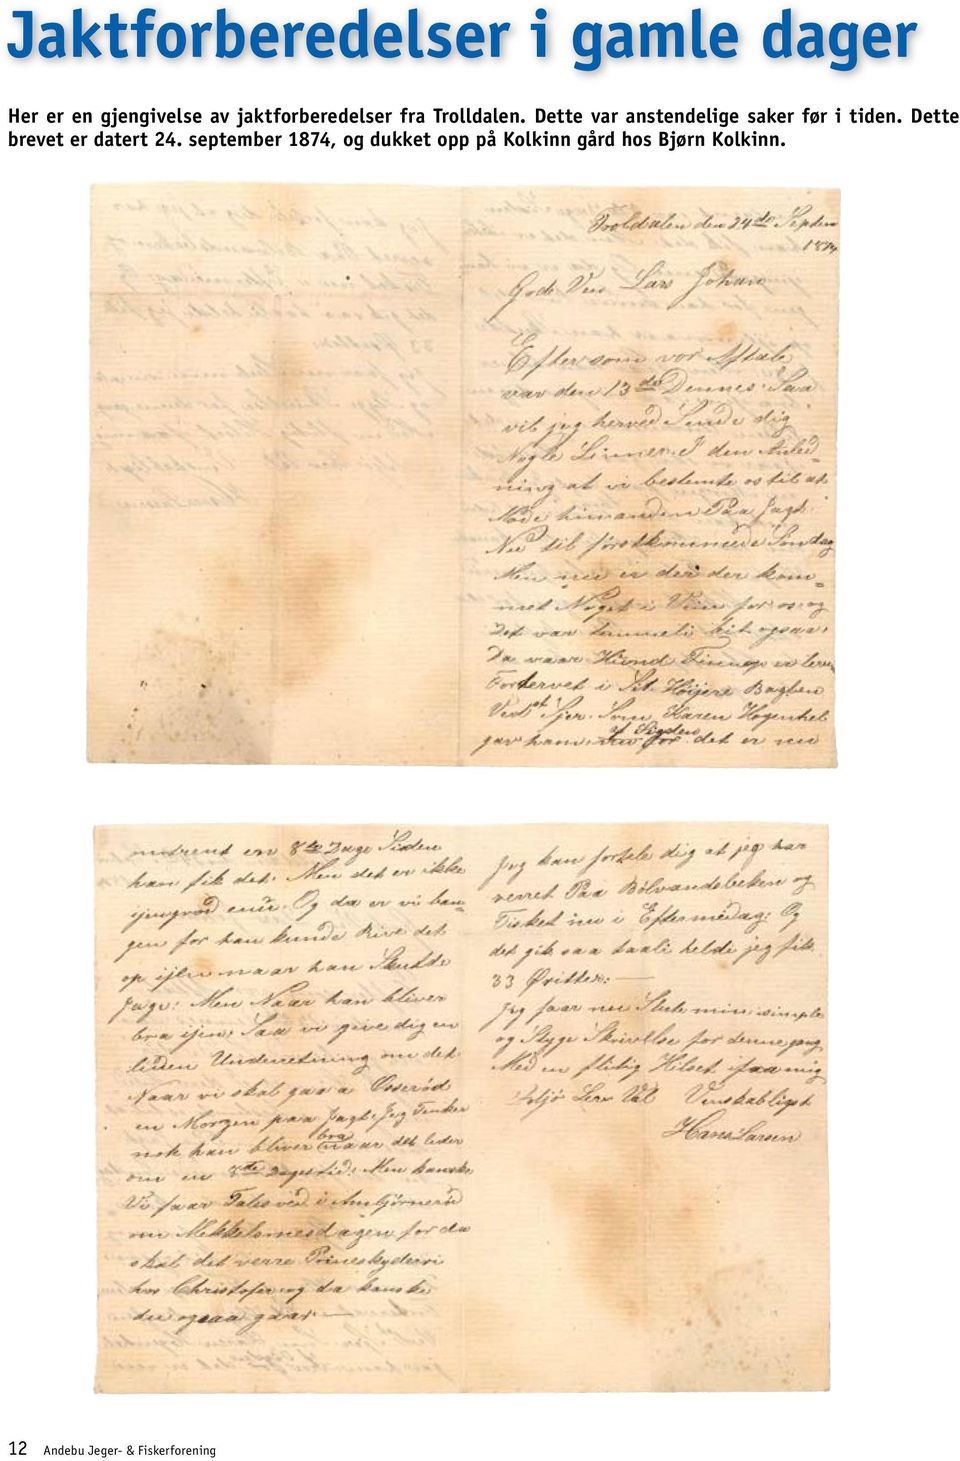 Jaktforberedelser i gamle dager
Her er en gjengivelse av jaktforberedelser fra Trolldalen. Dette var anstendelige saker før i tiden. Dette
brevet er datert 24. september 1874, og dukket opp på Kolkinn gård hos Bjørn Kolkinn.
Troldalen den 24de Septem
1874
Gode Ven Lars Johan
Eftersom vor Aftale
var den 13de Dennes. Saa
vil jeg herved Sende dig
Nogle Linner. I den Anled=
ning at vi bestemte os til at
Møde hinanden Paa Jagt
Nu til førstkommende Søndag
Men nu er der der kom=
met Noget i Veien for os, og
Det var temmeli
Da vaar Hund er
i Sit Høijere Bagben
Ved Som Karen Hogenhel
gav ham det er nu
omtrent en 8te Dage Siden
han fik det. Men det er ikke
ijengrod enu. Og da er vi ban=
gen for han kunde Rive det
op ijen naar han Skulde
Jage: Men Naar han bliver
bra ijen. Saa vi give dig en
liden Underretning om det
Naar vi skal gaa a
en Morgen paa Jagt. Jeg Tenker
nok han bliver bra naar det leder
om en 8de Dagestid. Men kanske
Vi faar Tales ved i
om Mekkelsmesdagen for da
skal det verre
hos Christofer og da kanske
du ogsaa gaar.
Jeg kan fortele dig at jeg har
verret Paa Bølvandsbeken og
Fisket nu i Eftermedag: Og
det gik saa taali heldi jeg fik
33 Øritter:
Jeg faar nu Slute min simple
og Stygge Skrivelse for denne gang
Med en flitig Hilset ifraa mig
Lev Vel Venskabligst
Hans Larsen
12 Andebu Jeger- & Fiskerforening